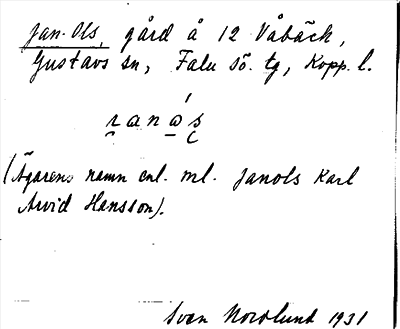 Jan-Ols, gård å 12 Våbäck,
Gustavs sn, Falu sö. tg, Kopp. l.
ranọs
(Ägarens namn enl. ml. Janols Karl
Arvid Hansson).
Sven Nordlund 1931